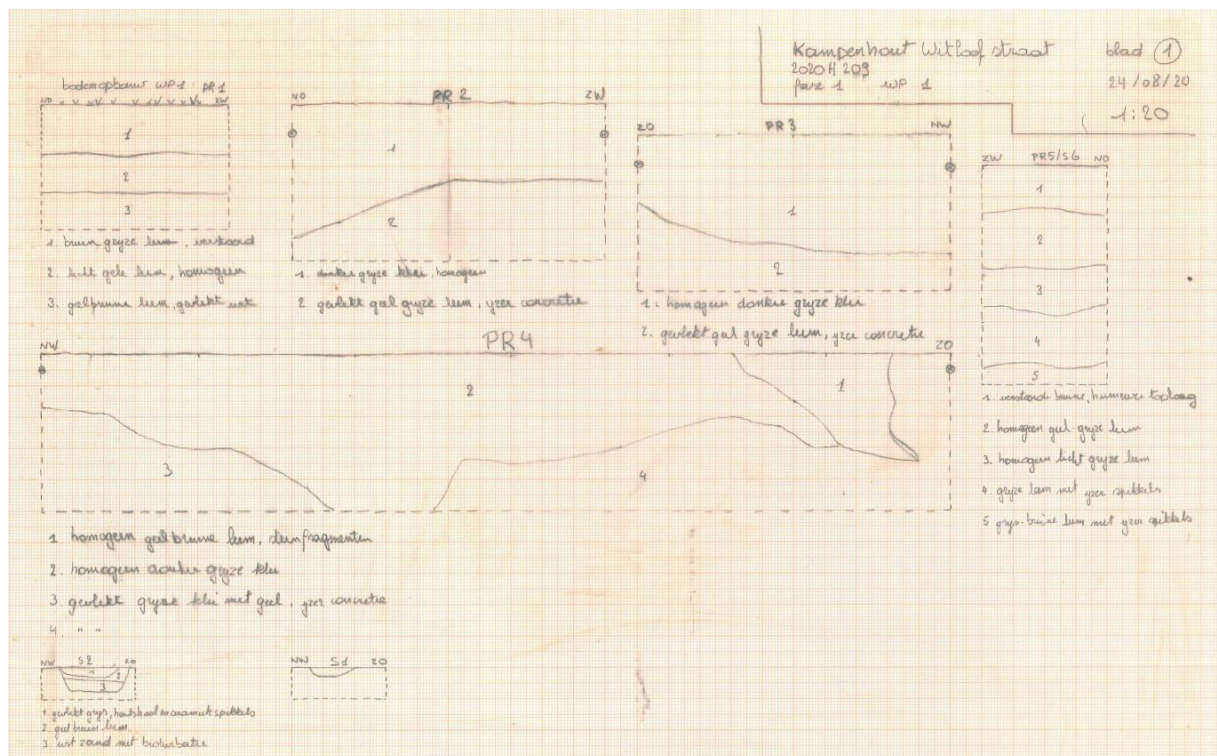 Kampenhout Witloof straat
2020 H 209
fase 1 WP 1
blad 1
24/08/20
1:20
bodemopbouw WP1 : PR1
NO ZW
1
2
3
1. bruin grijze leem, verstoord
2. licht gele leem, homogeen
3. geelbruine leem, gevlekt
NO PR 2 ZW
1
2
1 donker grijze klei, homogeen
2 gevlekt geel grijze leem, yzer concretie
ZO PR3 NW
1
2
1. homogeen donker grijze klei
2. gevlekt geel grijze leem, yzer concretie
ZW PR5/S6 NO
1
2
3
4
5
1. verstoorde bruine, humeuze toplaag
2 homogeen geel grijze leem
3. homogeen licht grijze leem
4. grijze leem met yzer spikkels
5 grijs-bruine leem met yzer spikkels
NW PR4 ZO
1
2
3
4
1 homogeen geelbruine leem, steenfragmenten
2. homogeen donker grijze klei
3 gevlekt grijze klei met geel, yzer concretie
4. " "
NW S2 ZO
1
2
3
1 gevlekt grijs, houtskool en ceramiek spikkels
2. geel bruin leem
3 zand met bioturbatie
NW S1 ZO